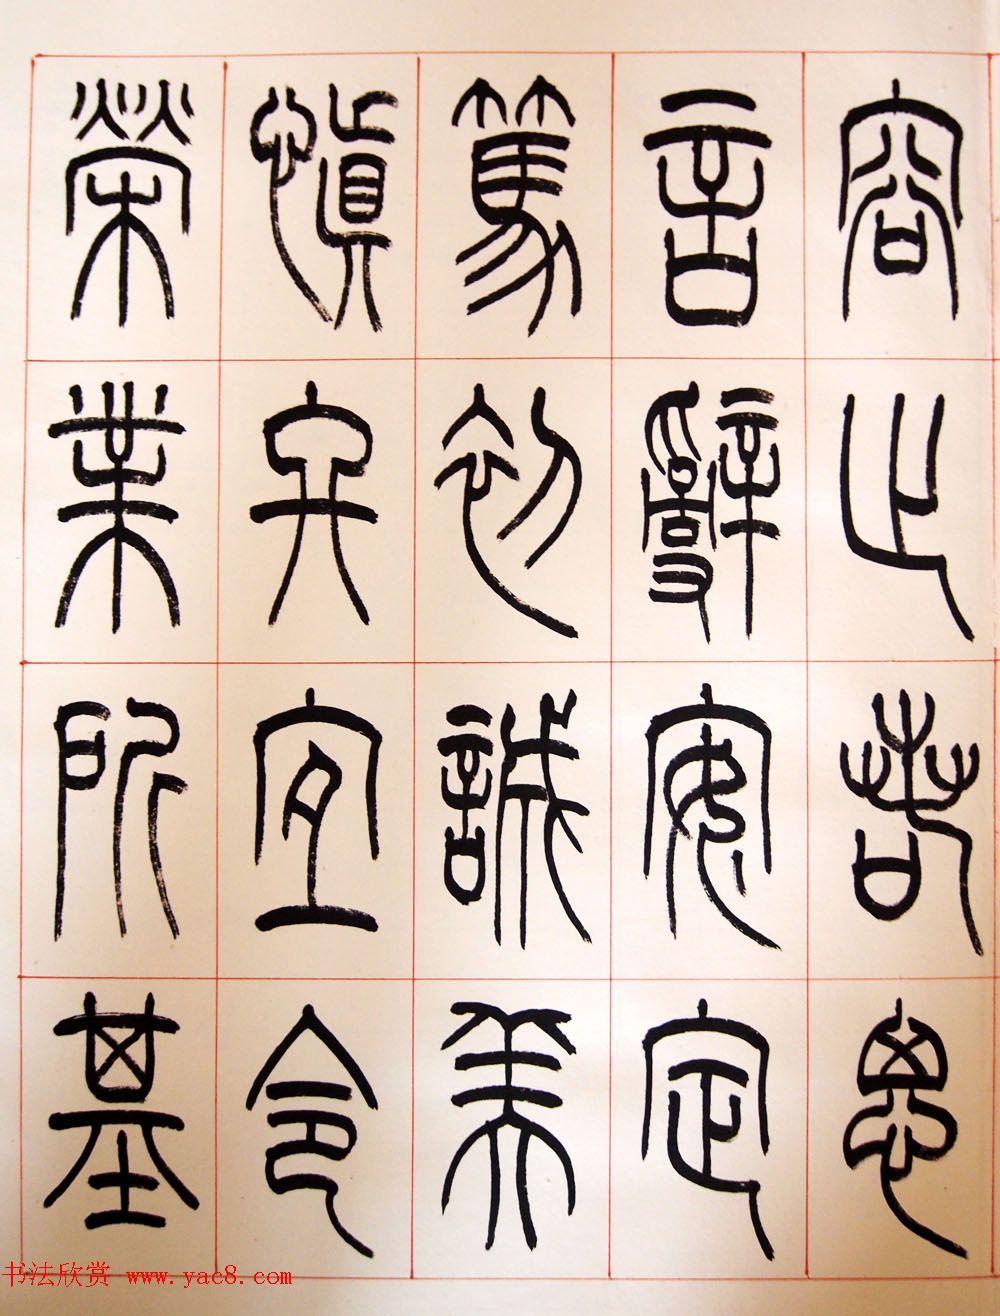 容止若思
言辭安定
篤初誠美
慎終宜令
榮業所基
书法欣赏 www.yac8.com